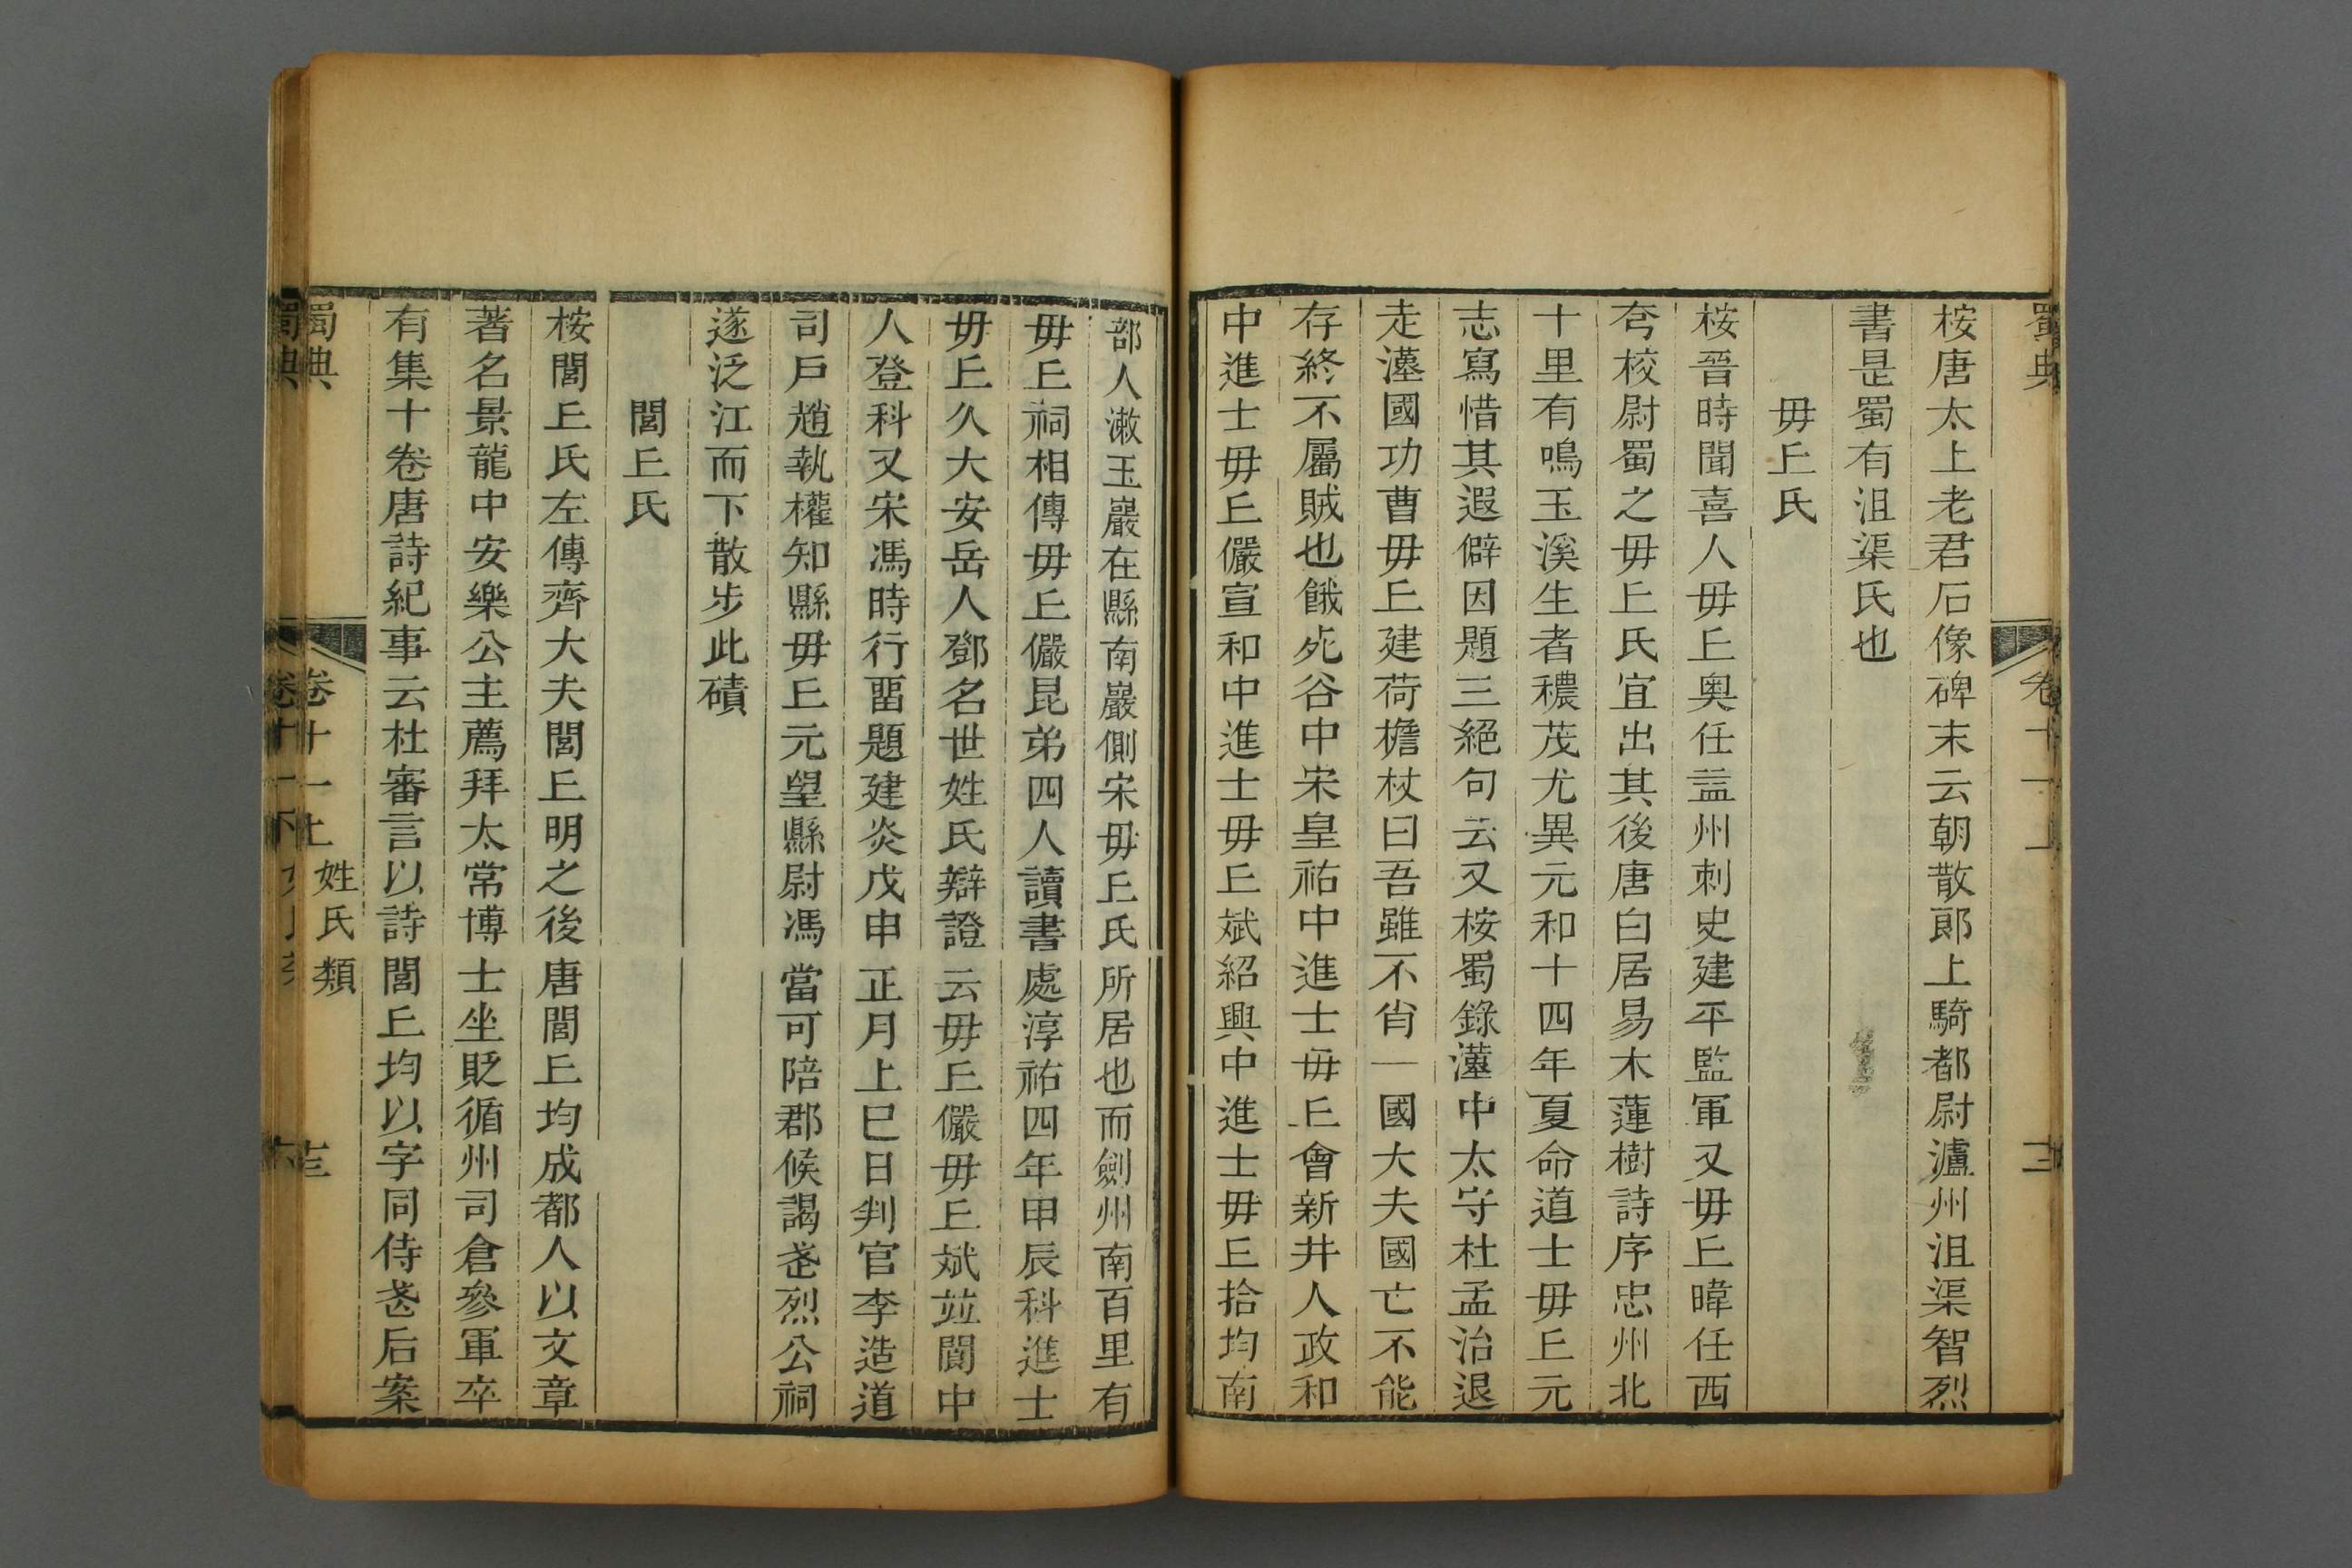 蜀典
卷十一上
桉唐太上老君石像碑末云朝散郎上騎都尉瀘州沮渠智烈
書是蜀有沮渠氏也
毋丘氏
桉晉時聞喜人毋丘奥任益州刺史建平監軍又毋丘暐任西
夸校尉蜀之毋丘氏宜出其後唐白居易木蓮樹詩序忠州北
十里有鳴玉溪生者穠茂尤異元和十四年夏命道士毋丘元
志寫惜其遐僻因題三絕句云又桉蜀錄漢中太守杜孟治退
走漢國功曹毋丘建荷檐杖曰吾雖不肖一國大夫國亡不能
存終不屬賊也餓死谷中宋皇祐中進士毋丘會新井人政和
中進士毋丘儼宣和中進士毋丘斌紹興中進士毋丘拾均南
部人漱玉巖在縣南巖側宋毋丘氏所居也而劍州南百里有
毋丘祠相傳毋丘儼昆弟四人讀書處淳祐四年甲辰科進士
毋丘久大安岳人鄧名世姓氏辯證云毋丘儼毋丘斌竝閬中
人登科又宋馮時行畱題建炎戊申正月上巳日判官李造道
司戶趙執權知縣毋丘元望縣尉馮當可陪郡候謁武烈公祠
遂泛江而下散步此磧
閭丘氏
桉閭丘氏左傳齊大夫閭丘明之後唐閭丘均成都人以文章
著名景龍中安樂公主薦拜太常博士坐貶循州司倉參軍卒
有集十卷唐詩紀事云杜審言以詩閭丘均以字同侍武后案
蜀典
卷十一上
姓氏類
蜀典
卷十一下